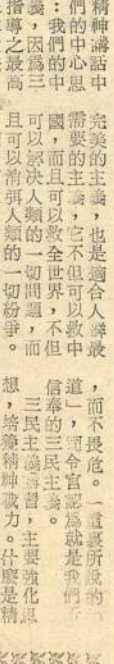 精神講話中
們的中心思
：我們的中
義，因爲三
指導之最高
完美的主義，也是適合人羣最
需要的主義，它不但可以救中
國，而且可以救全世界，不但
可以解决人類的一切問題，而
且可以消弭人類的一切紛爭。
，而不畏危。」這裏所說的「
道」，司令官認爲就是我們所
信奉的三民主義。
三民主義講習，主要強化思
想，培養精神戰力。什麼是精